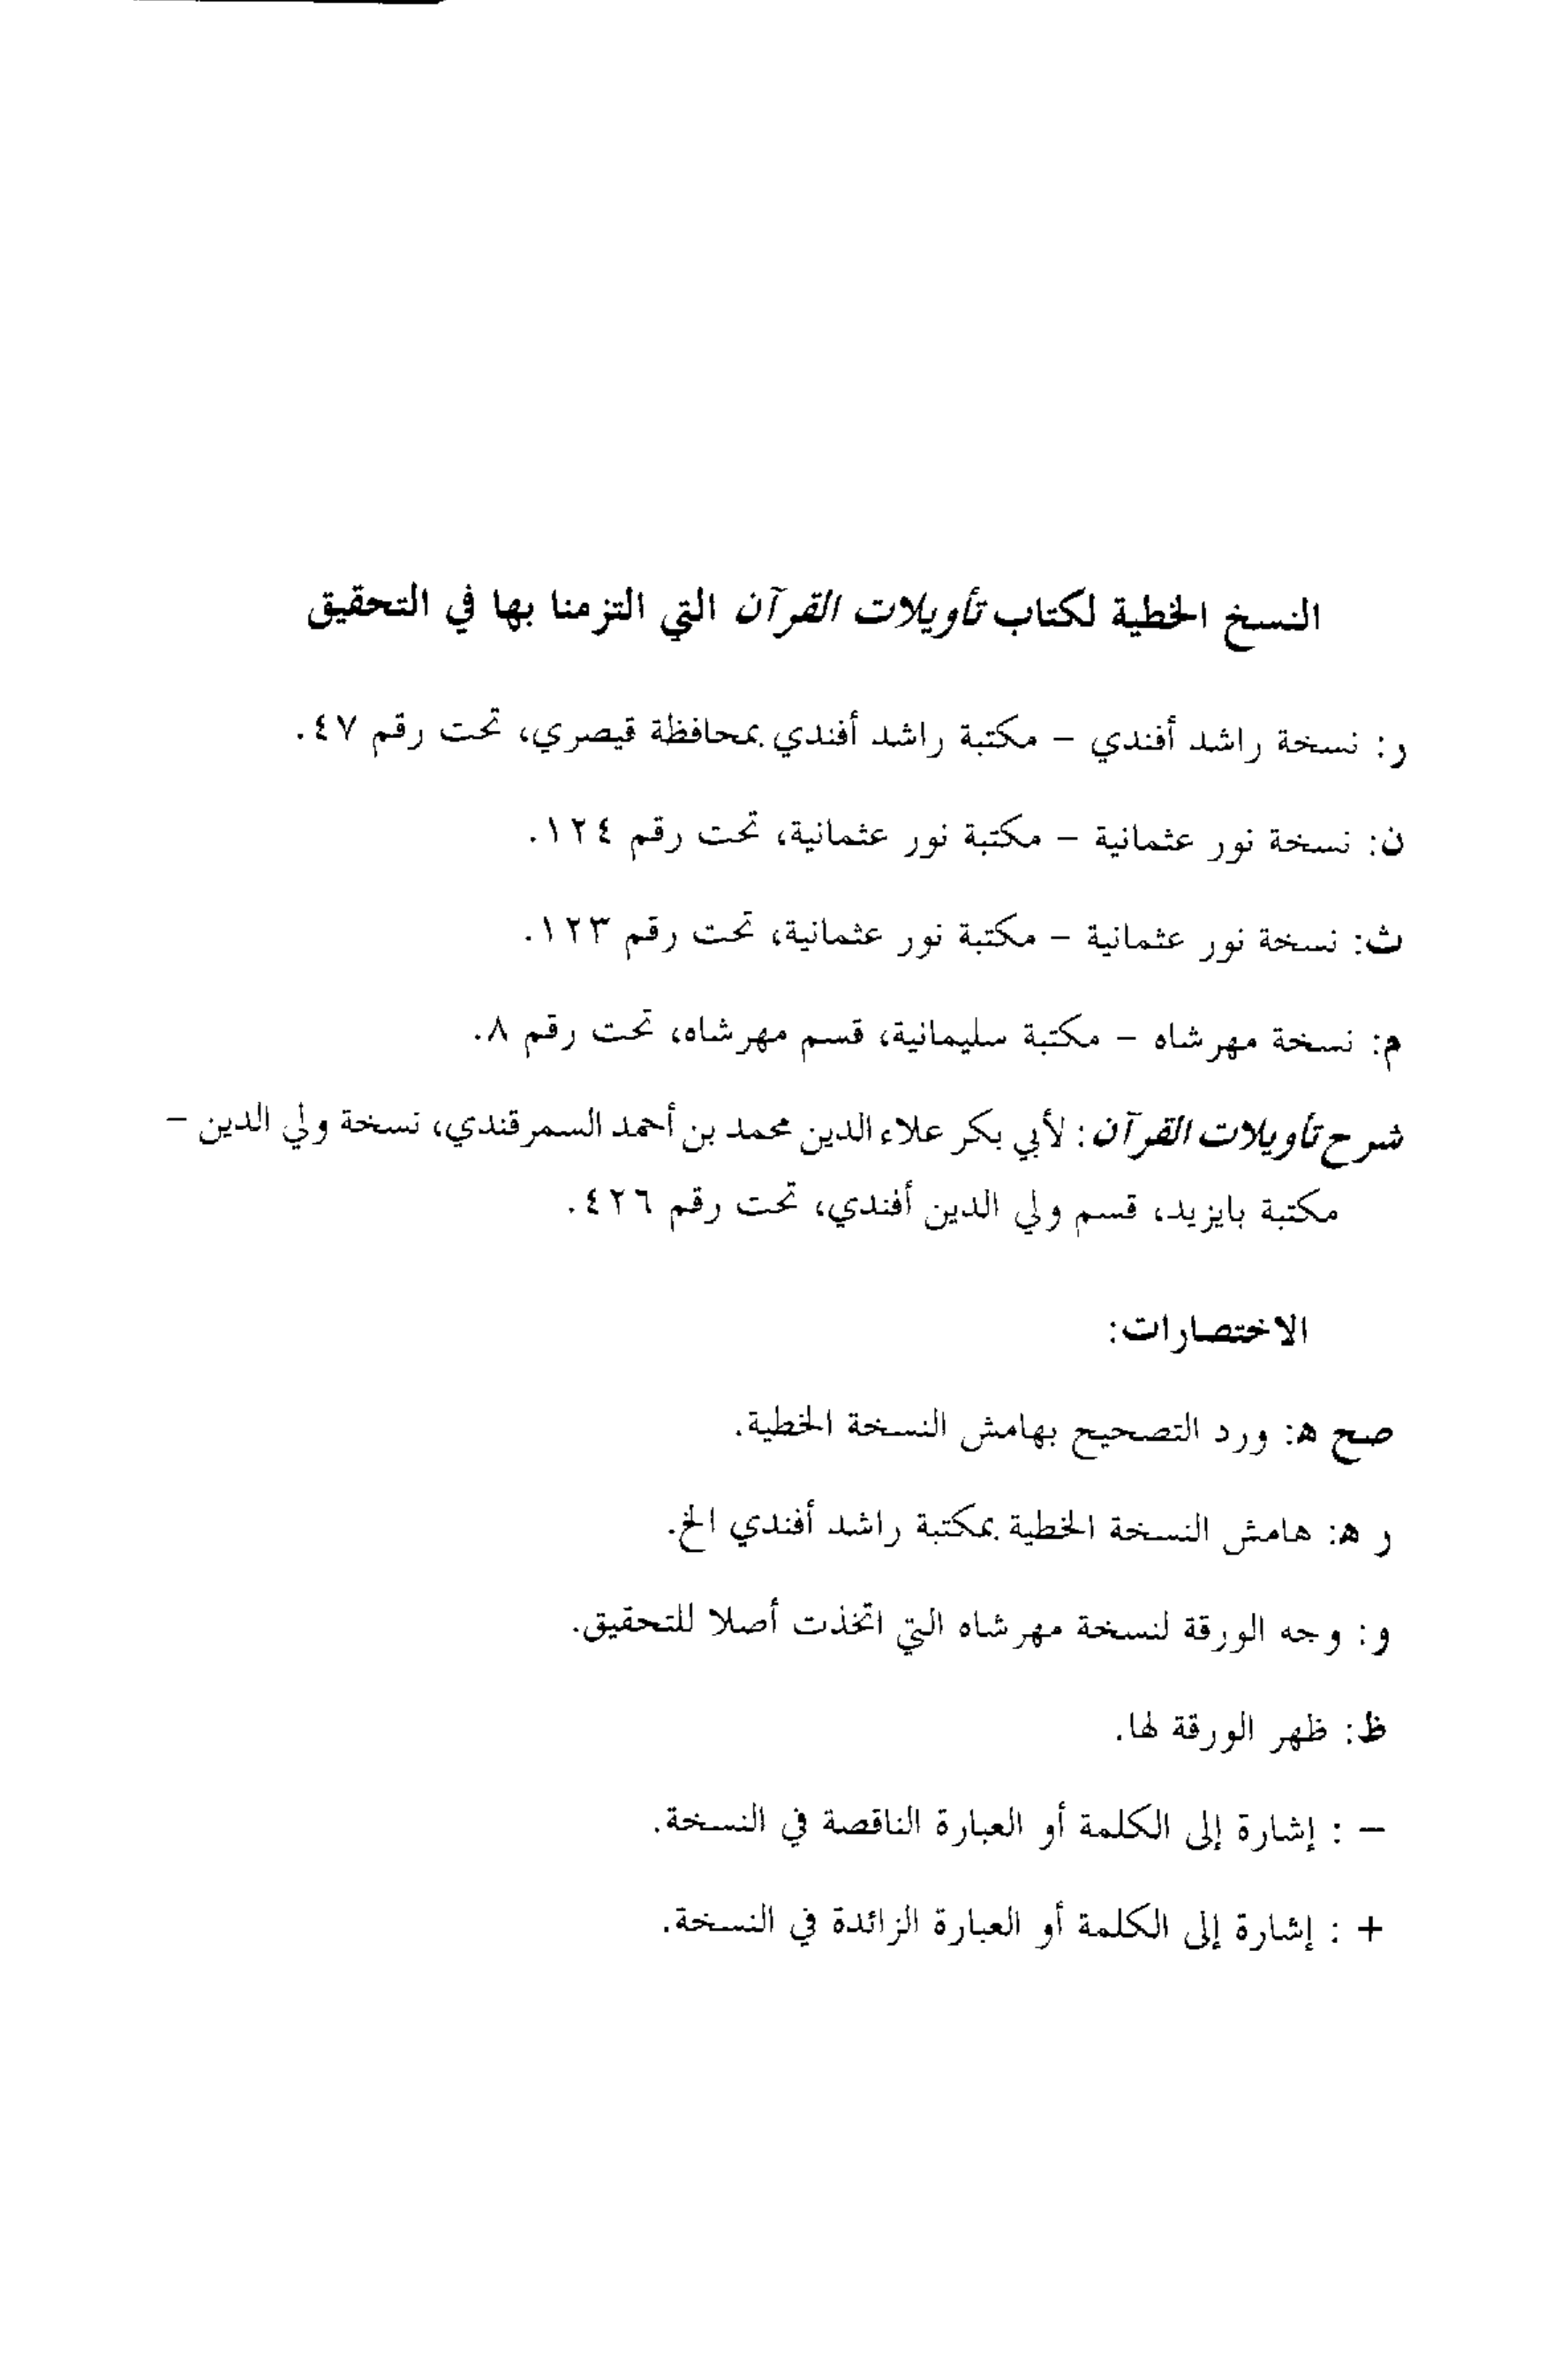 النسخ الخطية لكتاب تأويلات القرآن التي التزمنا بها في التحقيق
ر: نسخة راشد أفندي – مكتبة راشد أفندي بمحافظة قيصري، تحت رقم ٤٧.
ن: نسخة نور عثمانية – مكتبة نور عثمانية، تحت رقم ١٢٤.
ث: نسخة نور عثمانية – مكتبة نور عثمانية، تحت رقم ١٢٣.
م: نسخة مهرشاه – مكتبة سليمانية، قسم مهرشاه، تحت رقم ٨.
شرح تأويلات القرآن: لأبي بكر علاء الدين محمد بن أحمد السمرقندي، نسخة ولي الدين –
مكتبة بايزيد، قسم ولي الدين أفندي، تحت رقم ٤٢٦.
الاختصارات:
صح ه: ورد التصحيح بهامش النسخة الخطية.
ر ه: هامش النسخة الخطية بمكتبة راشد أفندي الخ.
و: وجه الورقة لنسخة مهرشاه التي اتخذت أصلا للتحقيق.
ظ: ظهر الورقة لها.
– : إشارة إلى الكلمة أو العبارة الناقصة في النسخة.
+ : إشارة إلى الكلمة أو العبارة الزائدة في النسخة.